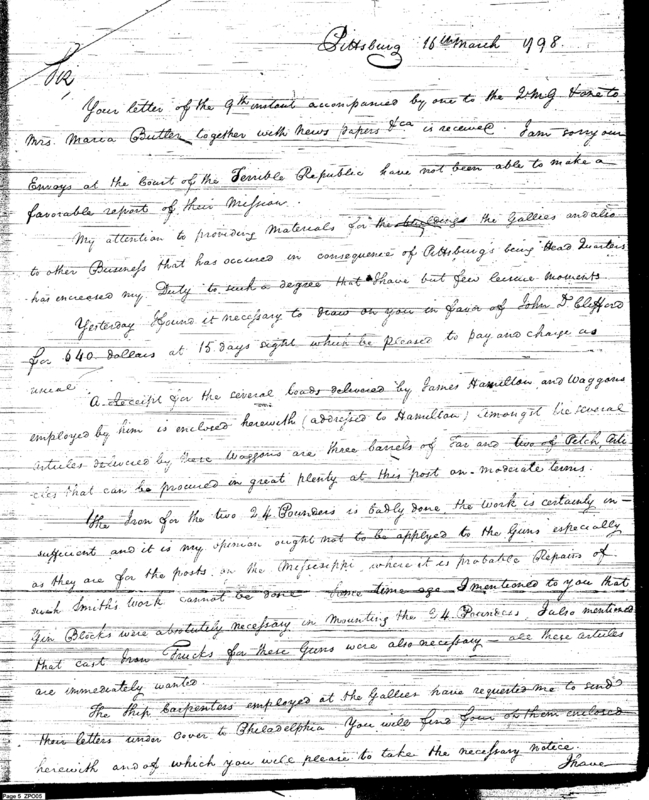 Pittsburg 16th March 1798.
Sir,
Your letter of the 9th instant accompanied by one to the Q.M.G & one to
Mrs. Maria Butler together with News papers &ca is received. I am sorry our
Envoys at the Court of the Terrible Republic have not been able to make a
favorable report of their Mission.
My attention to providing Materials for the buildings the Gallies and also
to other Business that has occured in consequence of Pittsburg's being Head Quarters
has increased my Duty to such a degree that I have but few leisure moments.
Yesterday I found it necessary to draw on you in favor of John D. Clifford
for 640 dollars at 15 days sight which be pleased to pay and charge as
usual
A Receipt for the several loads delivered by James Hamilton and Waggons
employed by him is enclosed herewith (addressed to Hamilton) Amongst the several
articles delivered by these Waggons are three barrels of Tar and two of Pitch, Arti-
cles that can be procured in great plenty at this post on moderate terms.
The Iron for the two 24 Pounders is badly done the work is certainly in-
sufficient and it is my opinion ought not to be applyed to the Guns especially
as they are for the posts on the Mississippi where it is probable Repairs of
such Smith's work cannot be done Some time ago I mentioned to you that
Gin Blocks were absolutely necessary in mounting the 24 Pounders, I also mentioned
that cast Iron Trucks for these Guns were also necessary - all these articles
are immediately wanted
The Ship Carpenters employed at the Gallies have requested me to send
their letters under cover to Philadelphia. You will find four of them enclosed
herewith and of which you will please to take the necessary notice.
I have
Page 5 ZPO05